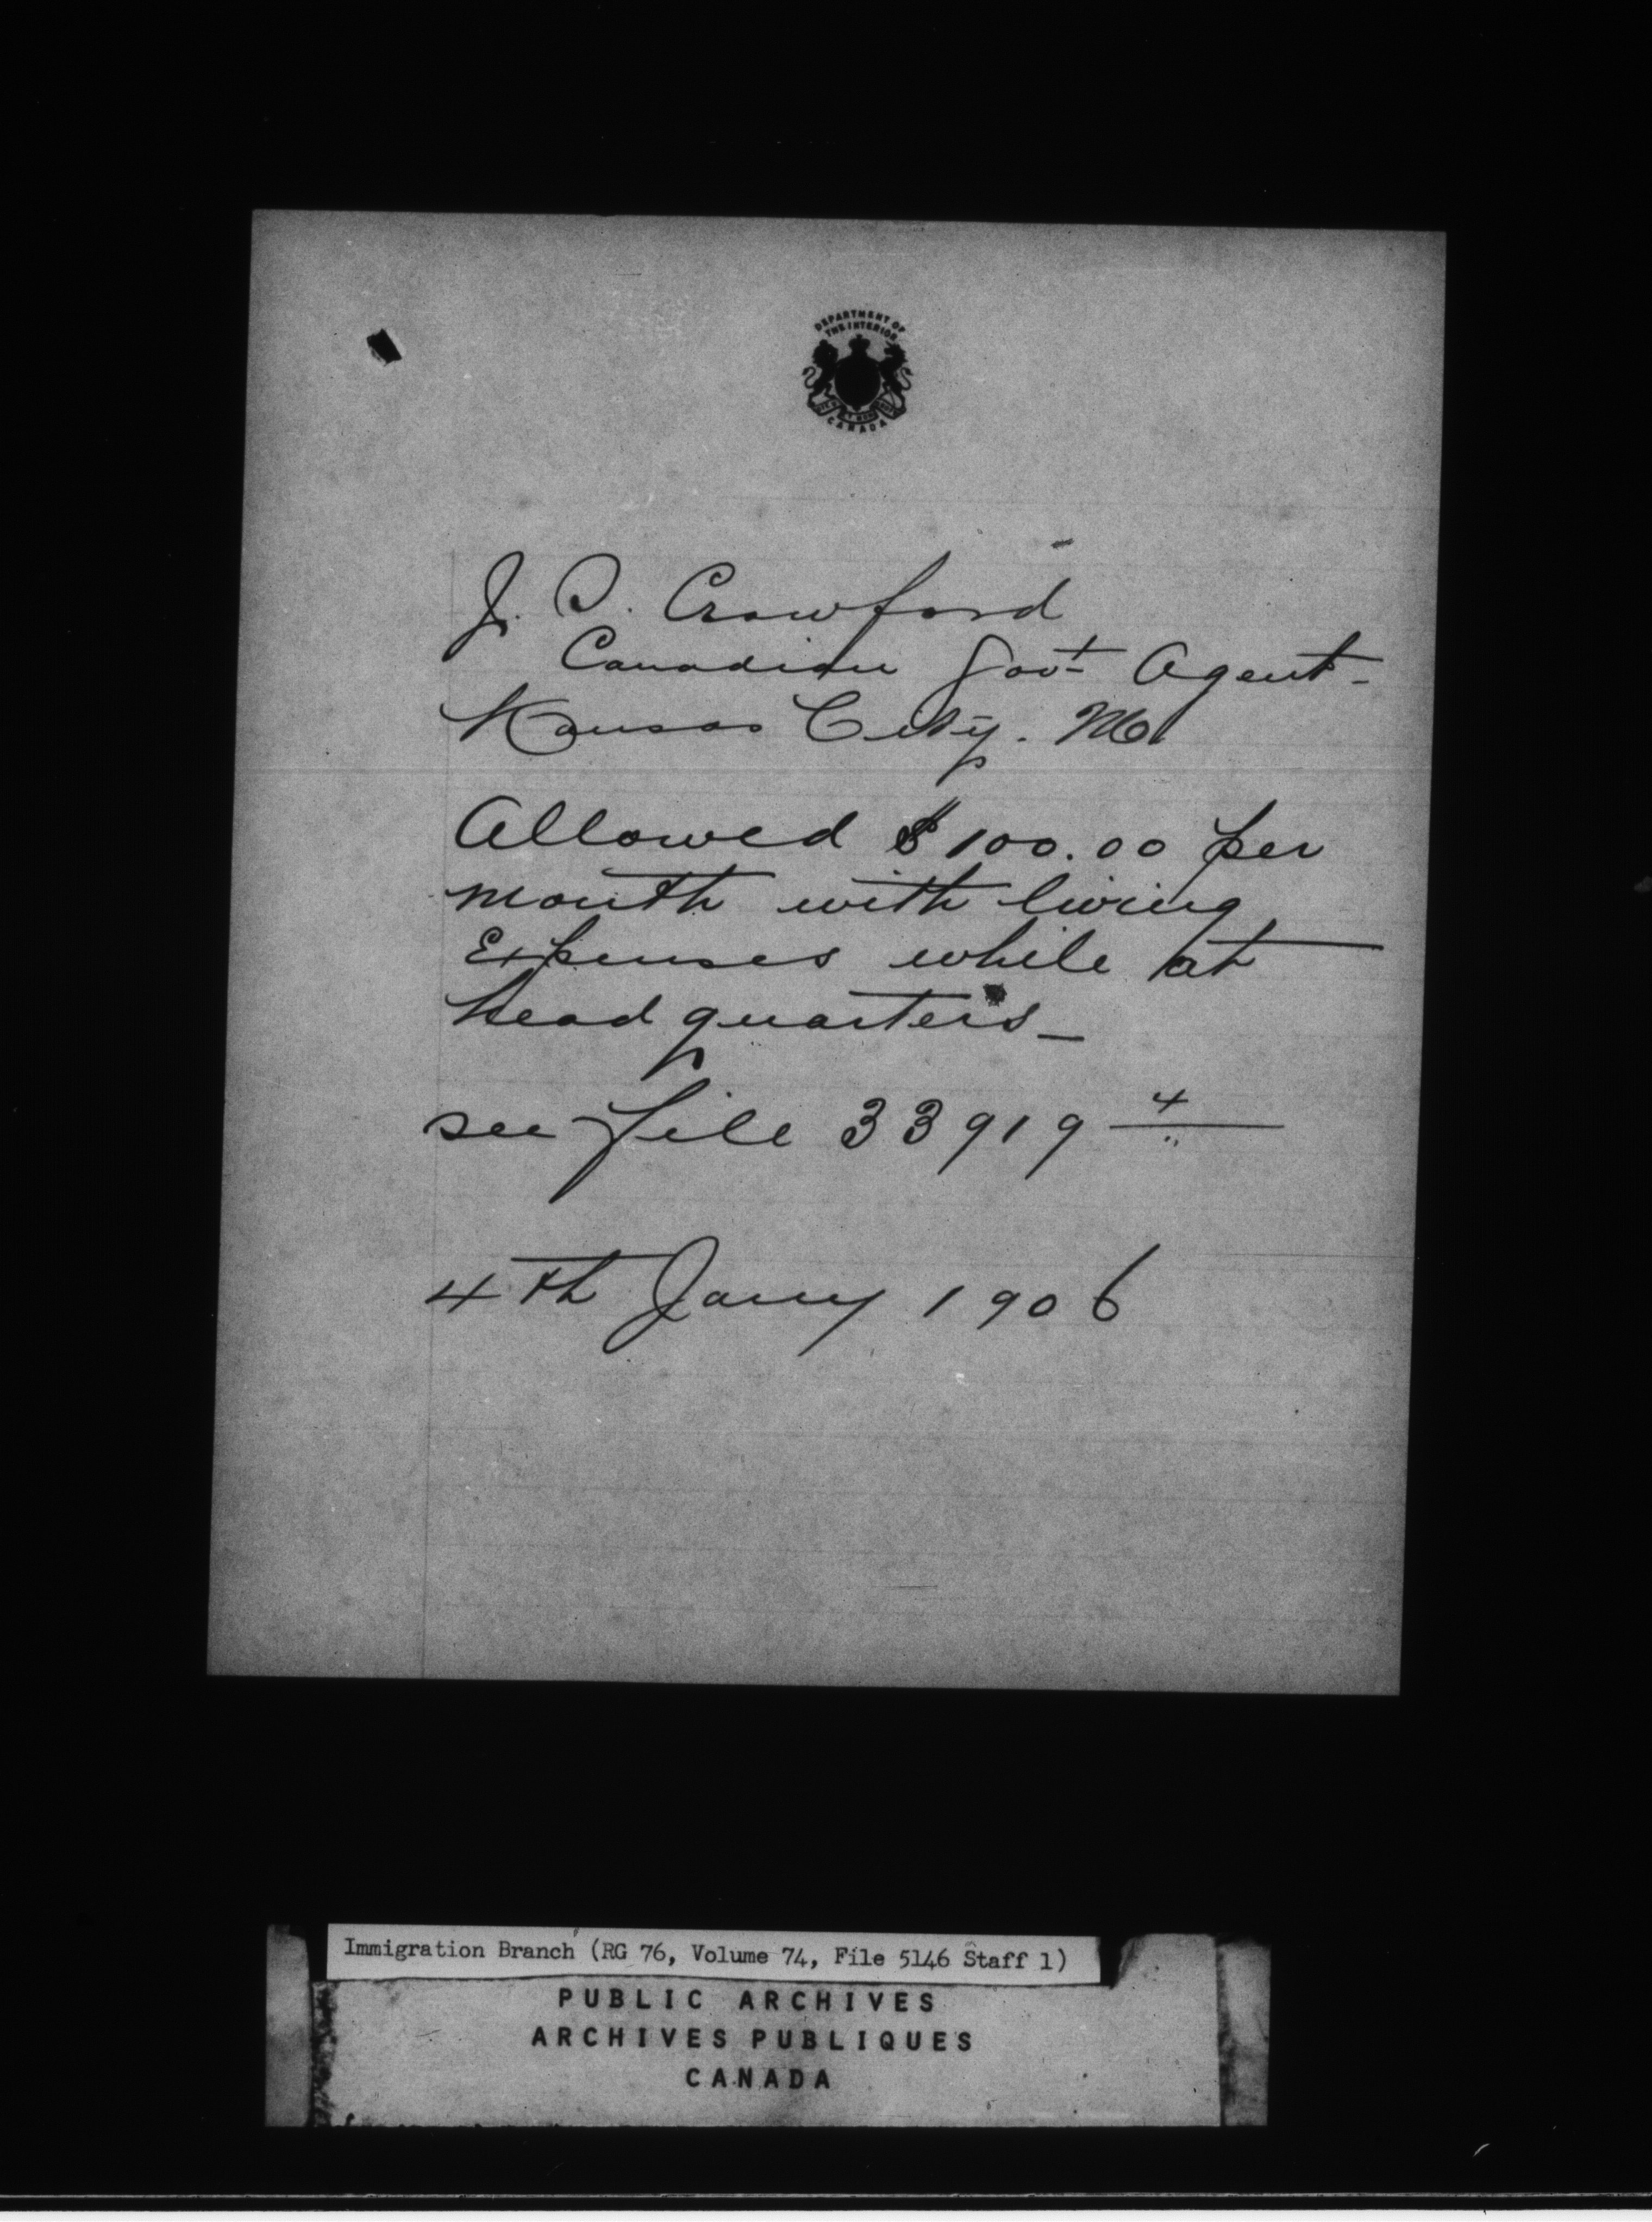 DEPARTMENT OF
THE INTERIOR
CANADA
J. S. Crawford
Canadian Govt Agent-
Kansas City. Mo
Allowed $100.00 per
month with living
Expenses while at
head quarters—
see file 33919 4
4th Jany 1906
Immigration Branch (RG 76, Volume 74, File 5146 Staff 1)
PUBLIC ARCHIVES
ARCHIVES PUBLIQUES
CANADA